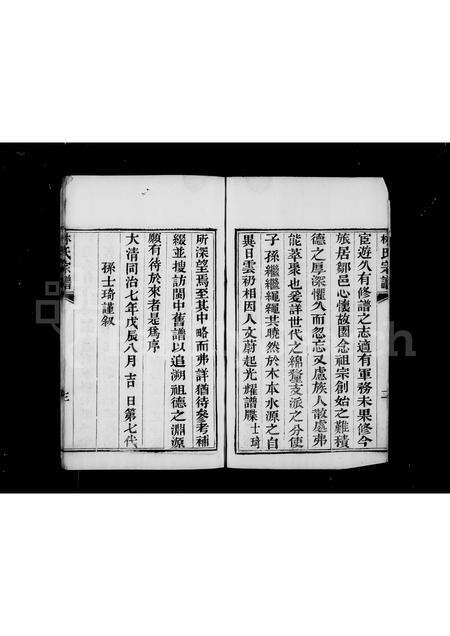 宦遊久有修譜之志適有軍務未果修今
旅居鄒邑心懷故園念祖宗創始之難積
德之厚深懼久而忽忘又慮族人散處弗
能萃聚也爰詳世代之綿蕃支派之分使
子孫繼繼繩繩其曉然於木本水源之自
異日雲礽相因人文蔚起光耀譜牒士琦
所深望焉至其中略而弗詳猶待參考補
綴並搜訪閩中舊譜以追溯祖德之淵源
願有待於來者是為序
大清同治七年戊辰八月吉日第七代
孫士琦謹叙
林氏宗譜